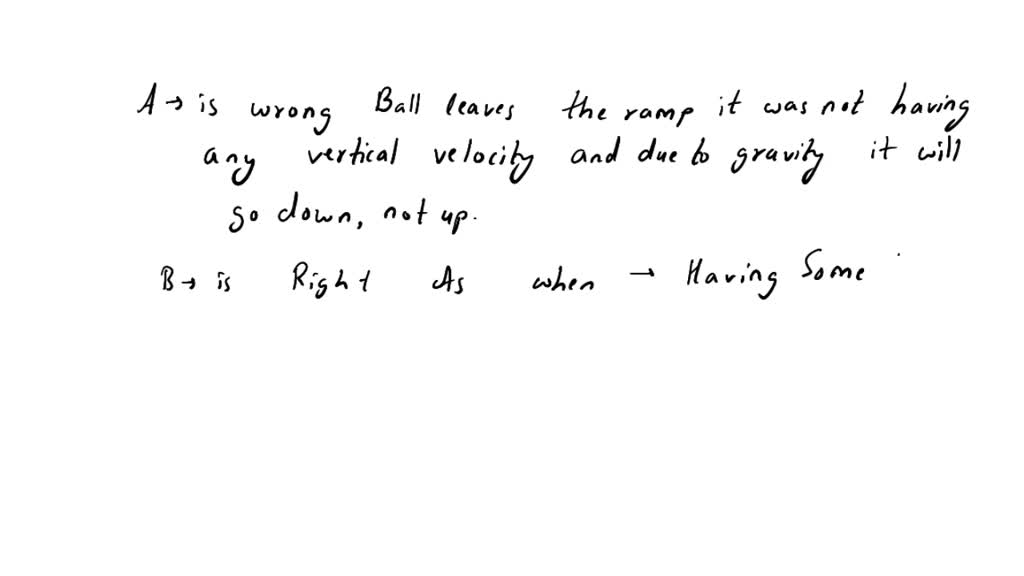 A → is wrong Ball leaves the ramp it was not having
any vertical velocity and due to gravity it will
go down, not up.
B → is Right As when → Having Some